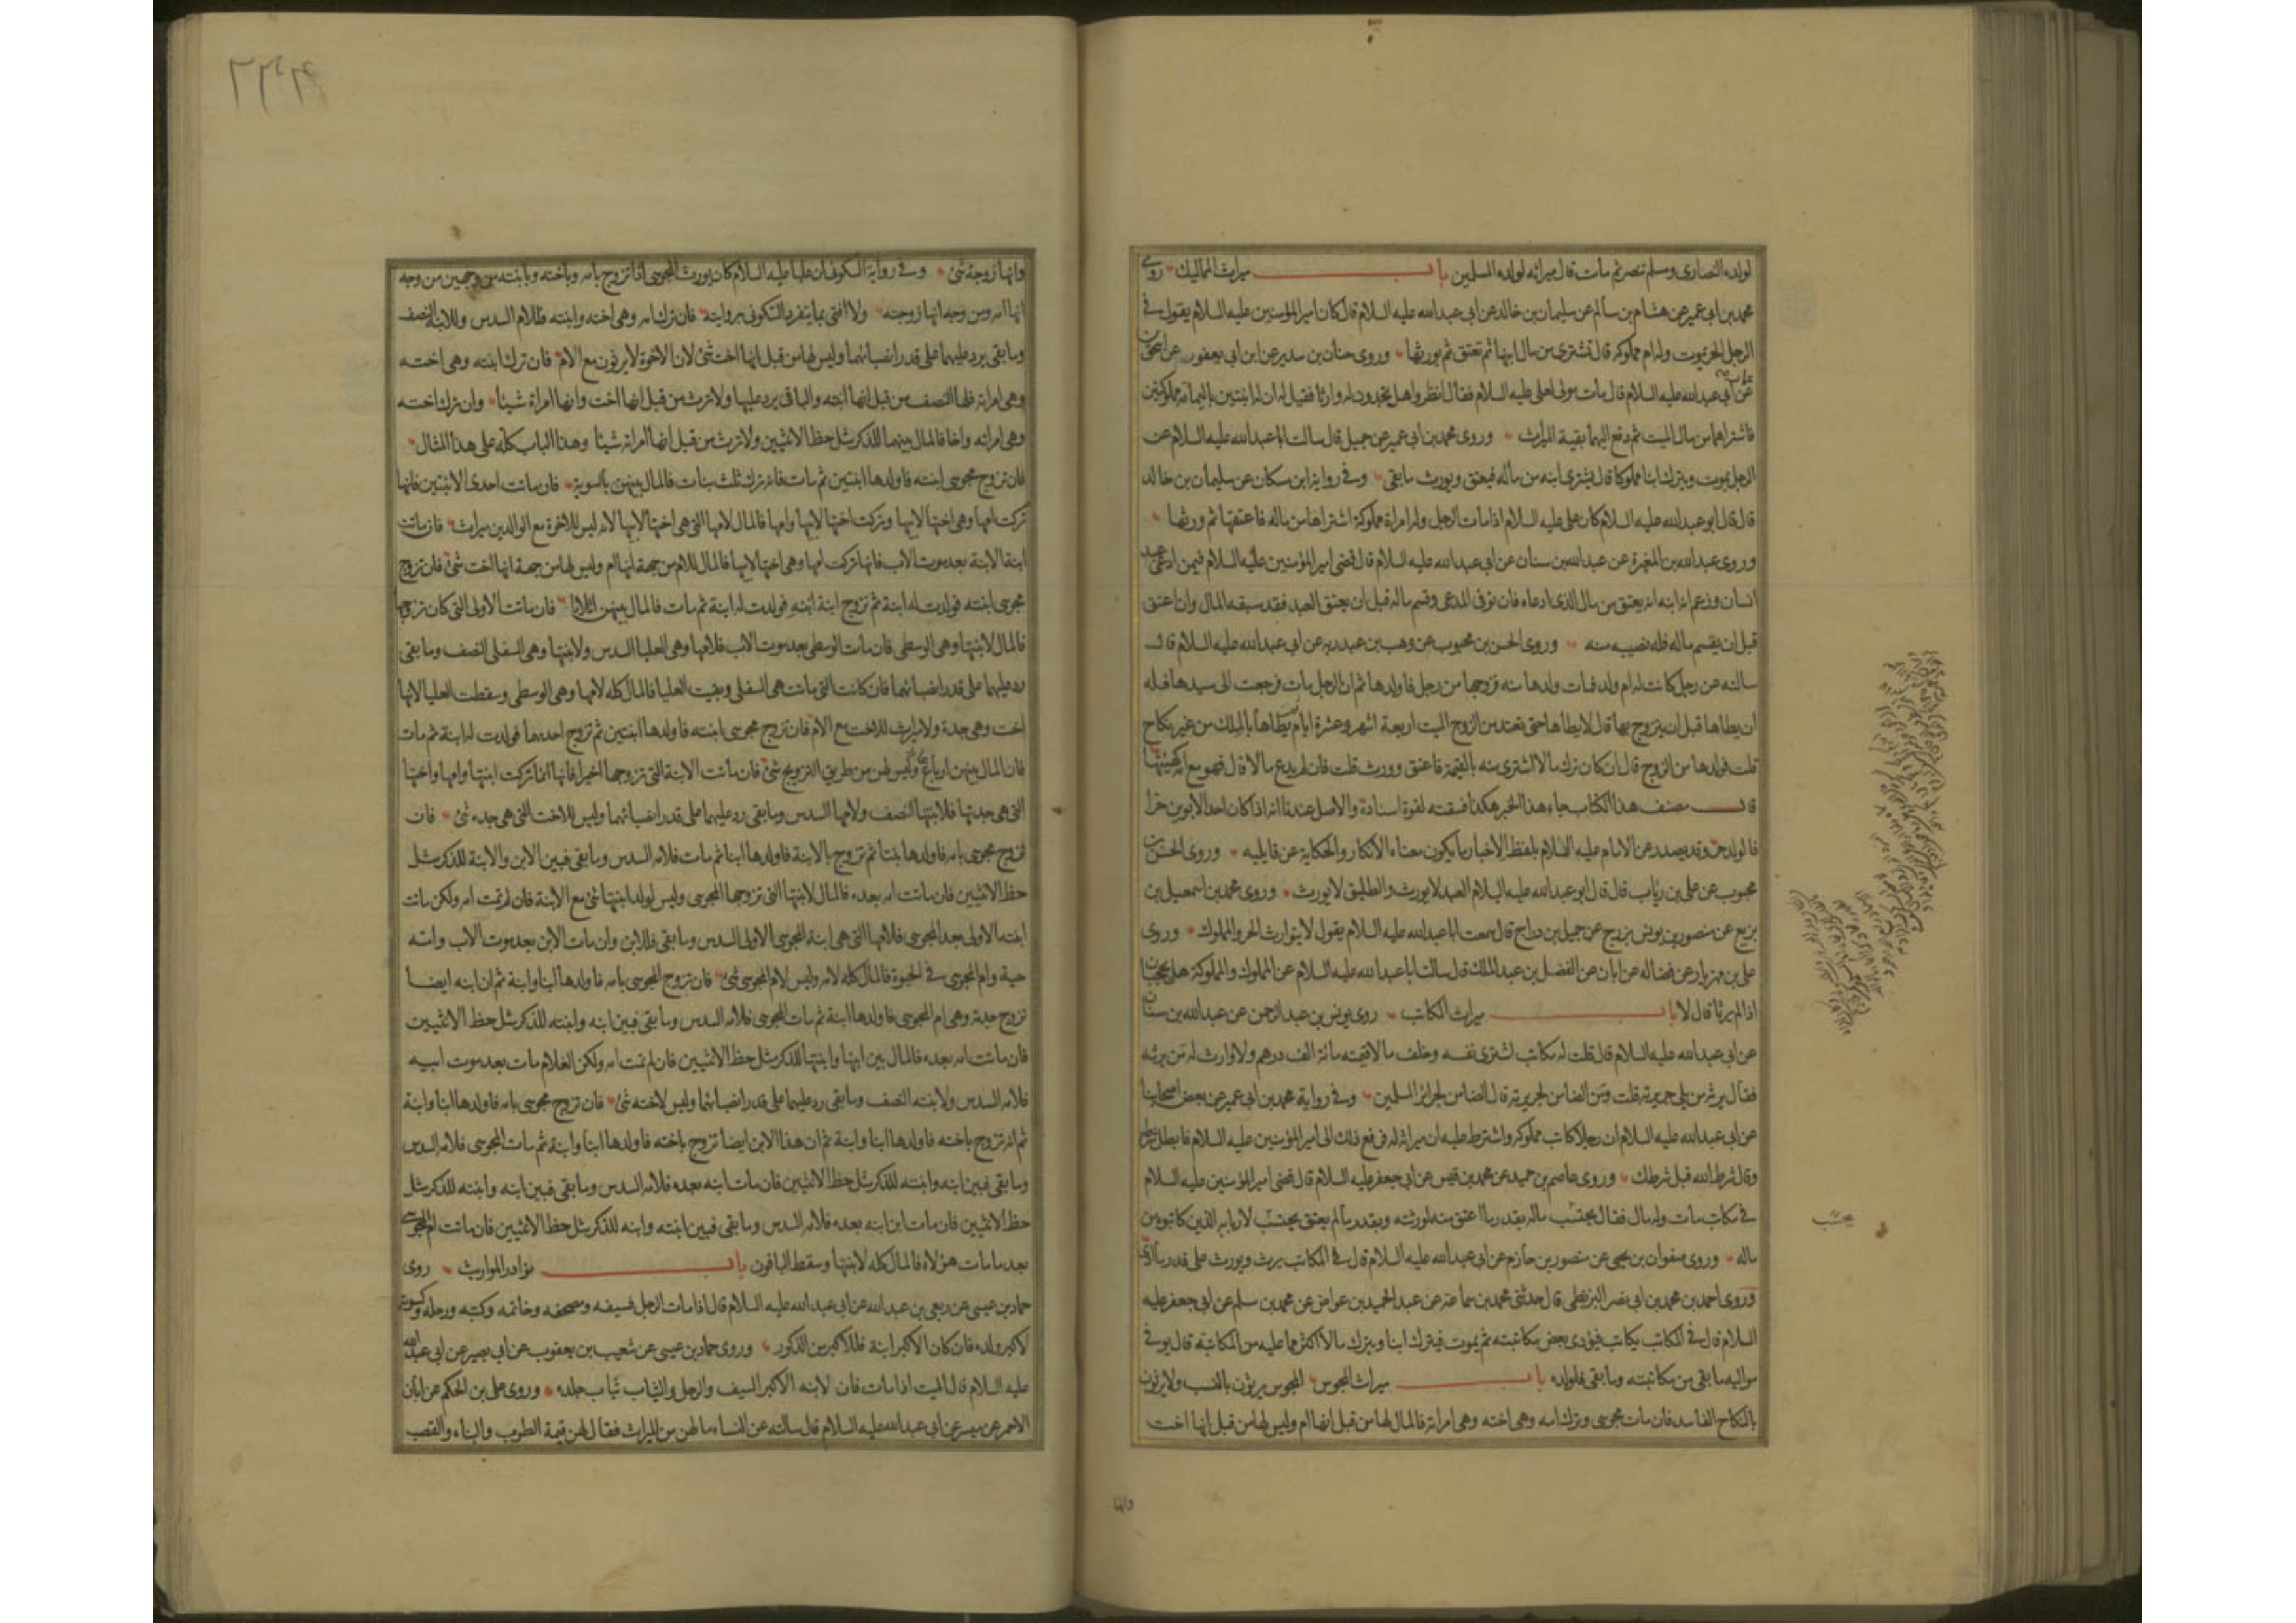 لولده النصارى ومسلم تنصر ثم مات قال ميراثه لولده المسلمين باب ميراث المماليك روى
محمد بن ابي عمير عن هشام بن سالم عن سليمان بن خالد عن ابي عبدالله عليه السلام قال كان امير المؤمنين عليه السلام يقول في
الرجل الحر يموت وله ام مملوكة قال تشترى من مال ابنها ثم تعتق ثم يورثها وروى حنان بن سدير عن ابن ابي يعفور عن اسحق
عن ابي عبدالله عليه السلام قال مات مولى لعلي عليه السلام فقال انظروا هل تجدون له وارثا فقيل له ان له ابنتين باليمامة مملوكتين
فاشتراهما من مال الميت ثم دفع اليهما بقية الميراث وروى محمد بن ابي عمير عن جميل قال سالت ابا عبدالله عليه السلام عن
الرجل يموت ويترك ابنا مملوكا قال يشترى ابنه من ماله فيعتق ويورث ما بقى وفي رواية ابن مسكان عن سليمان بن خالد
قال قال ابو عبدالله عليه السلام كان علي عليه السلام اذا مات الرجل وله امراة مملوكة اشتراها من ماله فاعتقها ثم ورثها
وروى عبدالله بن المغيرة عن عبدالله بن سنان عن ابي عبدالله عليه السلام قال قضى امير المؤمنين عليه السلام فيمن ادعى عبد
انسان وزعم انه ابنه انه يعتق من مال الذي ادعاه فان توفى المدعي وقسم ماله قبل ان يعتق العبد فقد سبقه المال وان اعتق
قبل ان يقسم ماله فله نصيبه منه وروى الحسن بن محبوب عن وهب بن عبد ربه عن ابي عبدالله عليه السلام قال
سالته عن رجل كانت له ام ولد فمات ولدها منه فزوجها من رجل فاولدها ثم ان الرجل مات فرجعت الى سيدها فله
ان يطاها قبل ان يتزوج بها قال لا يطاها حتى تعتد من الزوج الميت اربعة اشهر وعشرة ايام ثم يطاها بالملك من غير نكاح
قلت فولدها من الزوج قال ان كان ترك مالا اشترى منه بالقيمة فاعتق وورث قلت فان لم يدع مالا قال فهو مع امه كهيئتها
قال مصنف هذا الكتاب جاء هذا الخبر هكذا فسقته لقوة اسناده والاصل عندنا انه اذا كان احد الابوين حرا
فالولد حر وقد يصدر عن الامام عليه السلام بلفظ الاخبار ما يكون معناه الانكار والحكاية عن قايليه وروى الحسن بن
محبوب عن علي بن رياب قال قال ابو عبدالله عليه السلام العبد لا يورث والطليق لا يورث وروى محمد بن اسمعيل بن
بزيع عن منصور بن يونس بزرج عن جميل بن دراج قال سمعت ابا عبدالله عليه السلام يقول لا يتوارث الحر والمملوك وروى
علي بن مهزيار عن فضاله عن ابان عن الفضل بن عبد الملك قال سالت ابا عبدالله عليه السلام عن المملوك والمملوكة هل يحجبان
اذا لم يرثا قال لا باب ميراث المكاتب روى يونس بن عبد الرحمن عن عبدالله بن سنان
عن ابي عبدالله عليه السلام قال قلت له مكاتب اشترى نفسه وخلف مالا قيمته مائة الف درهم ولا وارث له من يرثه
فقال يرثه من يلي جريرته قلت ومن الضامن لجريرته قال الضامن لجرائر المسلمين وفي رواية محمد بن ابي عمير عن بعض اصحابنا
عن ابي عبدالله عليه السلام ان رجلا كاتب مملوكه واشترط عليه ان ميراثه له فرفع ذلك الى امير المؤمنين عليه السلام فابطل شرطه
وقال شرط الله قبل شرطك وروى عاصم بن حميد عن محمد بن قيس عن ابي جعفر عليه السلام قال قضى امير المؤمنين عليه السلام
في مكاتب مات وله مال فقال يحتسب ماله بقدر ما اعتق منه لورثته وبقدر ما لم يعتق يحتسب لاربابه الذين كاتبوه من
ماله وروى صفوان بن يحيى عن منصور بن حازم عن ابي عبدالله عليه السلام قال في المكاتب يرث ويورث على قدر ما ادى
وروى احمد بن محمد بن ابي نصر البزنطي قال حدثني محمد بن سماعة عن عبد الحميد بن عواض عن محمد بن مسلم عن ابي جعفر عليه
السلام قال في المكاتب يكاتب فيؤدى بعض مكاتبته ثم يموت فيترك ابنا ويترك مالا اكثر مما عليه من المكاتبة قال يوفى
مواليه ما بقى من مكاتبته وما بقى فلولده باب ميراث المجوس المجوس يرثون بالنسب ولا يرثون
بالنكاح الفاسد فان مات مجوسى وترك امه وهى اخته وهى امراته فالمال لها من قبل انها ام وليس لها من قبل انها اخت
وانها
يحتسب
وانها زوجة شئ وفي رواية السكوني ان عليا عليه السلام كان يورث المجوسى اذا تزوج بامه وباخته وبابنته من وجهين من وجه
انها امه ومن وجه انها زوجته ولا افتى بما يتفرد السكونى بروايته فان ترك امه وهى اخته وابنته فللام السدس وللابنة النصف
وما بقى يرد عليهما على قدر انصبائهما وليس لها من قبل انها اخت شئ لان الاخوة لا يرثون مع الام فان ترك ابنته وهى اخته
وهى امراته فلها النصف من قبل انها ابنته والباقى يرد عليها ولا ترث من قبل انها اخت وانها امراة شيئا وان ترك اخته
وهى امراته واخا فالمال بينهما للذكر مثل حظ الانثيين ولا ترث من قبل انها امراته شيئا وهذا الباب كله على هذا المثال
فان تزوج مجوسى ابنته فاولدها ابنتين ثم مات فانه ترك ثلث بنات فالمال بينهن بالسوية فان ماتت احدى الابنتين فانها
تركت امها وهى اختها لابيها وتركت اختها لابيها وامها فالمال لامها التى هى اختها لابيها لانه ليس للاخوة مع الوالدين ميراث فان ماتت
ابنة الابنة بعد موت الاب فانها تركت امها وهى اختها لابيها فالمال للام من جهة انها ام وليس لها من جهة انها اخت شئ فان تزوج
مجوسى ابنته فولدت له ابنة ثم تزوج ابنة ابنته فولدت له ابنة ثم مات فالمال بينهن اثلاثا فان ماتت الاولى التى كان تزوجها
فالمال لابنتها وهى الوسطى فان مات الوسطى بعد موت الاب فلامها وهى العليا السدس ولابنتها وهى السفلى النصف وما بقى
رد عليهما على قدر انصبائهما فان كانت التى ماتت هى السفلى وبقيت العليا فالمال كله لامها وهى الوسطى وسقطت العليا لانها
اخت وهى جدة ولا ميراث للاخت مع الام فان تزوج مجوسى ابنته فاولدها ابنتين ثم تزوج احدهما فولدت له ابنة ثم مات
فان المال بينهن ارباعا وليس لهن من طريق التزويج شئ فان ماتت الابنة التى تزوجها اخيرا فانها انما تركت ابنتها وامها واختها
التى هى جدتها فلابنتها النصف ولامها السدس وما بقى رد عليهما على قدر انصبائهما وليس للاخت التى هى جده شئ فان
تزوج مجوسى بامه فاولدها بنتا ثم تزوج بالابنة فاولدها ابنا ثم مات فلامه السدس وما بقى فبين الابن والابنة للذكر مثل
حظ الانثيين فان ماتت امه بعده فالمال لابنتها التى تزوجها المجوسى وليس لولد ابنتها شئ مع الابنة فان لم تمت امه ولكن ماتت
ابنته الاولى بعد المجوسى فلامها التى هى ابنة المجوسى الاولى السدس وما بقى فللابن وان مات الابن بعد موت الاب وامه
حية وام المجوسى في الحيوة فالمال كله لامه وليس لام المجوسى شئ فان تزوج المجوسى بامه فاولدها ابنا وابنة ثم ان ابنه ايضا
تزوج جدته وهى ام المجوسى فاولدها ابنة ثم مات المجوسى فلامه السدس وما بقى فبين ابنه وابنته للذكر مثل حظ الانثيين
فان ماتت امه بعده فالمال بين ابنها وابنتها للذكر مثل حظ الانثيين فان لم تمت امه ولكن الغلام مات بعد موت ابيه
فلامه السدس ولابنته النصف وما بقى رد عليهما على قدر انصبائهما وليس لاخته شئ فان تزوج مجوسى بامه فاولدها ابنا وابنة
ثم انه تزوج باخته فاولدها ابنا وابنة ثم ان هذا الابن ايضا تزوج باخته فاولدها ابنا وابنة ثم مات المجوسى فلامه السدس
وما بقى فبين ابنه وابنته للذكر مثل حظ الانثيين فان مات ابنه بعده فلامه السدس وما بقى فبين ابنه وابنته للذكر مثل
حظ الانثيين فان مات ابن ابنه بعده فلامه السدس وما بقى فبين ابنته وابنه للذكر مثل حظ الانثيين فان ماتت ام المجوسى
بعد ما مات هؤلاء فالمال كله لابنتها وسقط الباقون باب نوادر المواريث روى
حماد بن عيسى عن ربعى بن عبدالله عن ابى عبدالله عليه السلام قال اذا مات الرجل فسيفه ومصحفه وخاتمه وكتبه ورحله وكسوته
لاكبر ولده فان كان الاكبر ابنة فللاكبر من الذكور وروى حماد بن عيسى عن شعيب بن يعقوب عن ابى بصير عن ابى عبدالله
عليه السلام قال الميت اذا مات فان لابنه الاكبر السيف والرحل والثياب ثياب جلده وروى على بن الحكم عن ابان
الاحمر عن ميسر عن ابى عبدالله عليه السلام قال سالته عن النساء ما لهن من الميراث فقال لهن قيمة الطوب والبناء والقصب